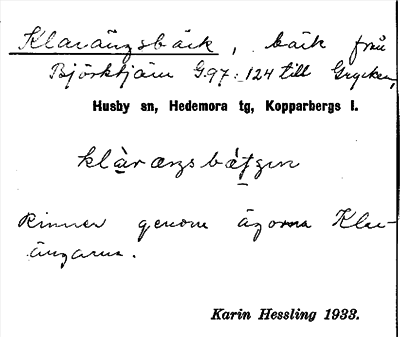 Klarängsbäck, bäck från
Björktjärn G.97:124 till Grycken,
Husby sn, Hedemora tg, Kopparbergs l.
klàrængsbæ̀tʃən
Rinner genom ägorna Klar-
ängarna.
Karin Hessling 1933.